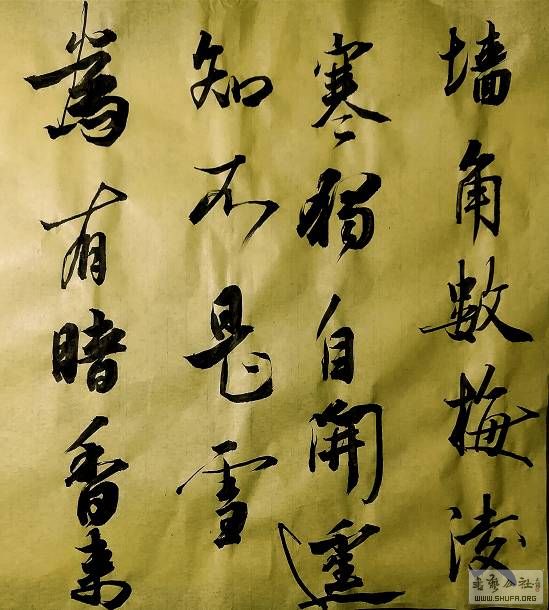 墙角数梅凌
寒独自開遥
知不是雪
為有暗香来
WWW.SHUFA.ORG